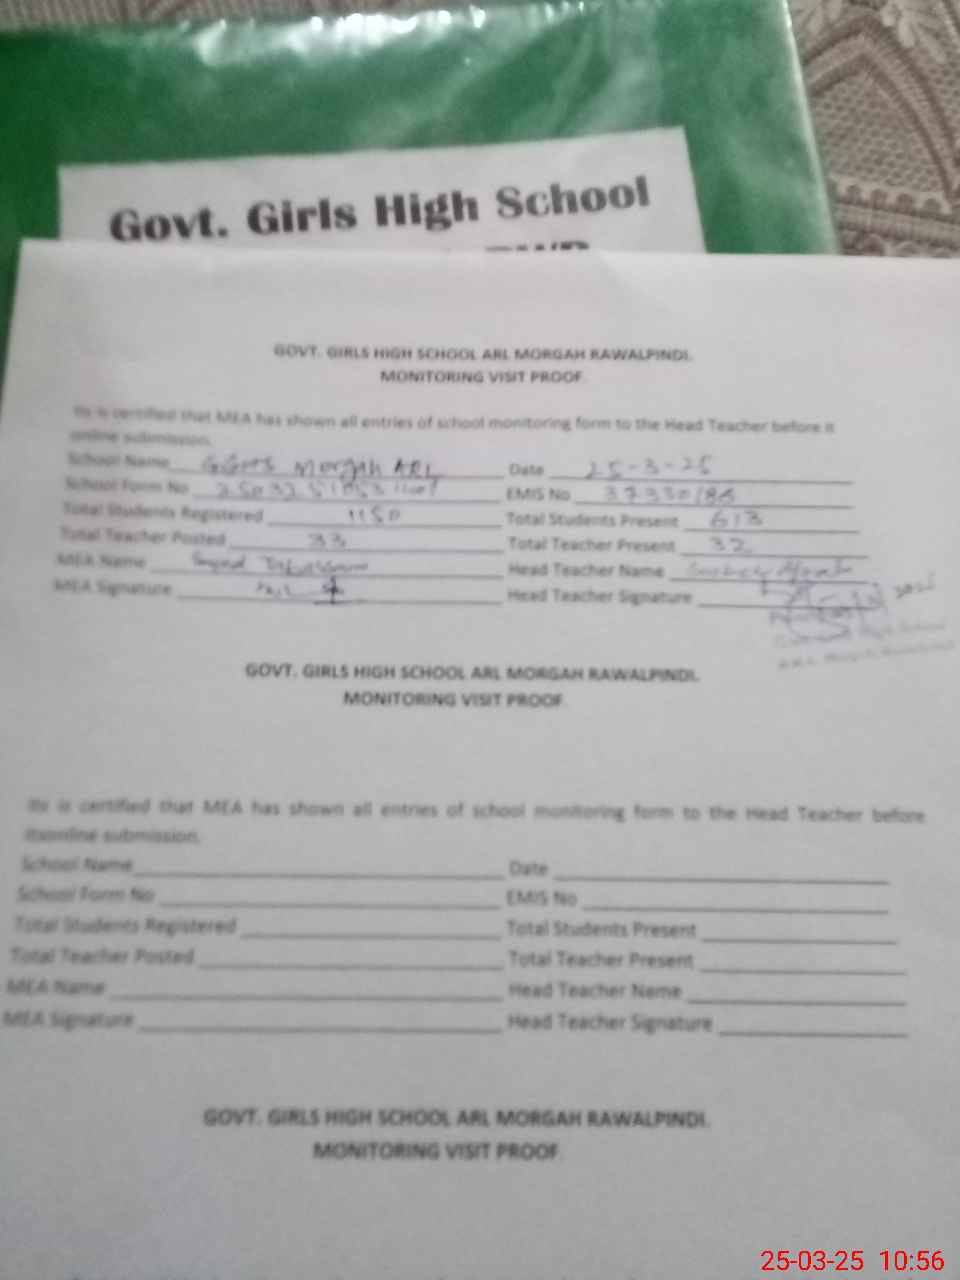 Govt. Girls High School
GOVT. GIRLS HIGH SCHOOL ARL MORGAH RAWALPINDI.
MONITORING VISIT PROOF.
Its is certified that MEA has shown all entries of school monitoring form to the Head Teacher before it
online submission.
School Name GGHS Morgah ARL Date 25-3-25
School Form No EMIS No 37330186
Total Students Registered 1150 Total Students Present 613
Total Teacher Posted 33 Total Teacher Present 32
MEA Name Head Teacher Name
MEA Signature Head Teacher Signature
GOVT. GIRLS HIGH SCHOOL ARL MORGAH RAWALPINDI.
MONITORING VISIT PROOF.
Its is certified that MEA has shown all entries of school monitoring form to the Head Teacher before
itsonline submission.
School Name Date
School Form No EMIS No
Total Students Registered Total Students Present
Total Teacher Posted Total Teacher Present
MEA Name Head Teacher Name
MEA Signature Head Teacher Signature
GOVT. GIRLS HIGH SCHOOL ARL MORGAH RAWALPINDI.
MONITORING VISIT PROOF.
25-03-25 10:56